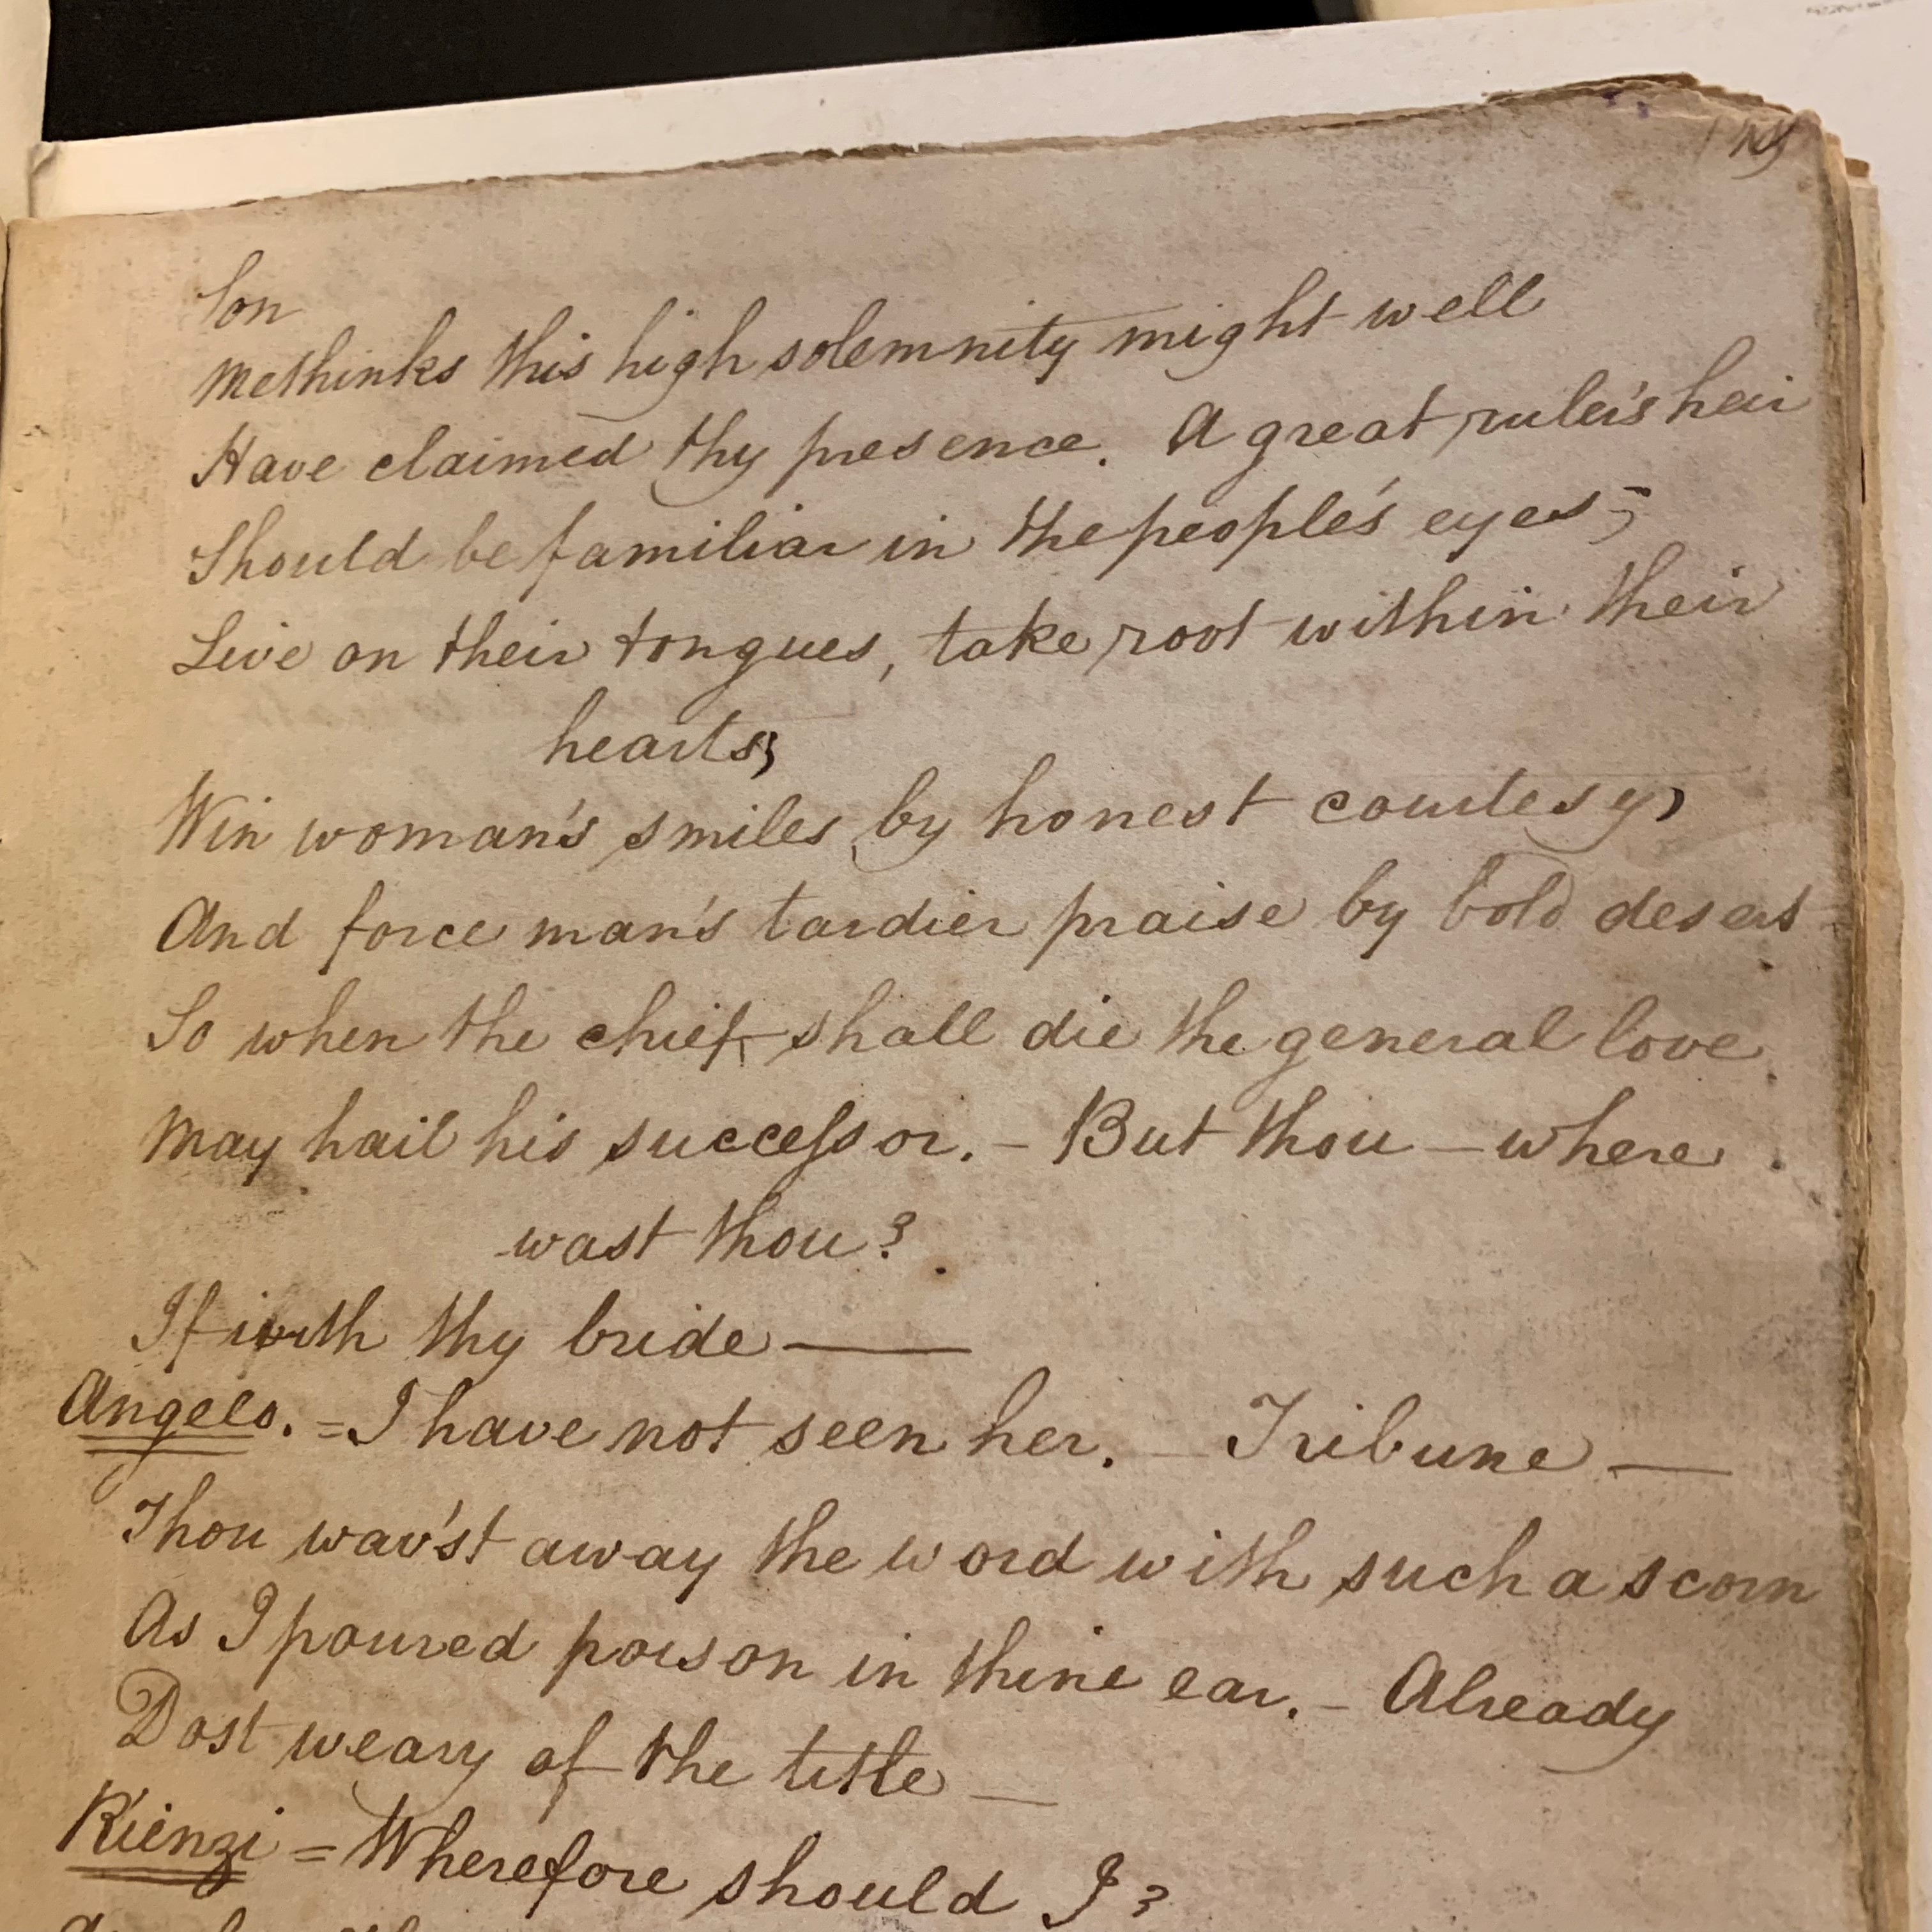 Son
Methinks this high solemnity might well
Have claimed thy presence. A great ruler's heir
Should be familiar in the people's eyes;
Live on their tongues, take root within their
hearts;
Win woman's smiles by honest courtesy,
And force man's tardier praise by bold desert
So when the chief shall die the general love
May hail his successor. - But thou - where
wast thou?
If with thy bride —
Angelo. = I have not seen her. Tribune —
Thou wav'st away the word with such a scorn
As I poured poison in thine ear. - Already
Dost weary of the title —
Rienzi = Wherefore should I?